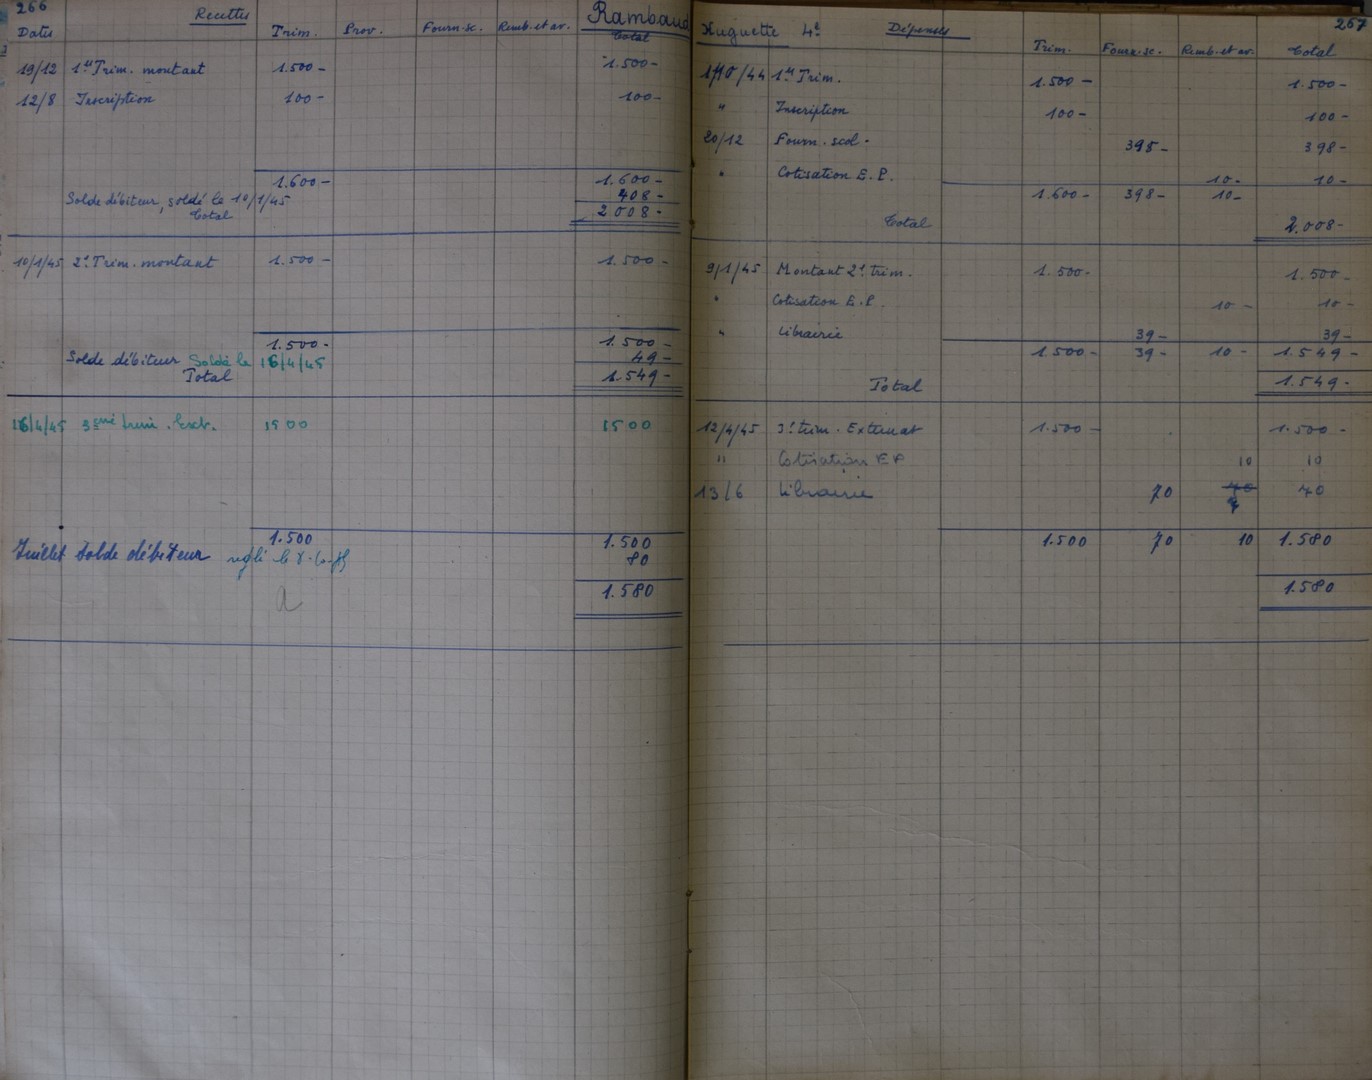 266 Recettes Rambaud
Dates Trim. Prov. Fourn. sc. Remb. et av. Total
19/12 1er Trim. montant 1.500- 1.500-
12/8 Inscription 100- 100-
1.600- 1.600-
Solde débiteur, soldé le 10/1/45 408-
Total 2008-
10/1/45 2e Trim. montant 1.500- 1.500-
1.500- 1.500-
Solde débiteur Soldé le 16/4/45 49-
Total 1.549-
16/4/45 3eme trim. Ext. 1500 1500
1.500 1.500
Juillet Solde débiteur réglé le 80
1.580
Huguette 4e Dépenses 267
Trim. Fourn. sc. Remb. et av. Total
/44 1er Trim. 1.500- 1.500-
" Inscription 100- 100-
20/12 Fourn. scol. 398- 398-
" Cotisation E.P. 10- 10-
1.600- 398- 10-
Total 2.008-
9/1/45 Montant 2e trim. 1.500- 1.500-
" Cotisation E.P. 10- 10-
" Librairie 39- 39-
1.500- 39- 10- 1.549-
Total 1.549-
12/4/45 3e trim. Externat 1.500- 1.500-
" Cotisation EP 10 10
13/6 Librairie 70 70
1.500 70 10 1.580
1.580